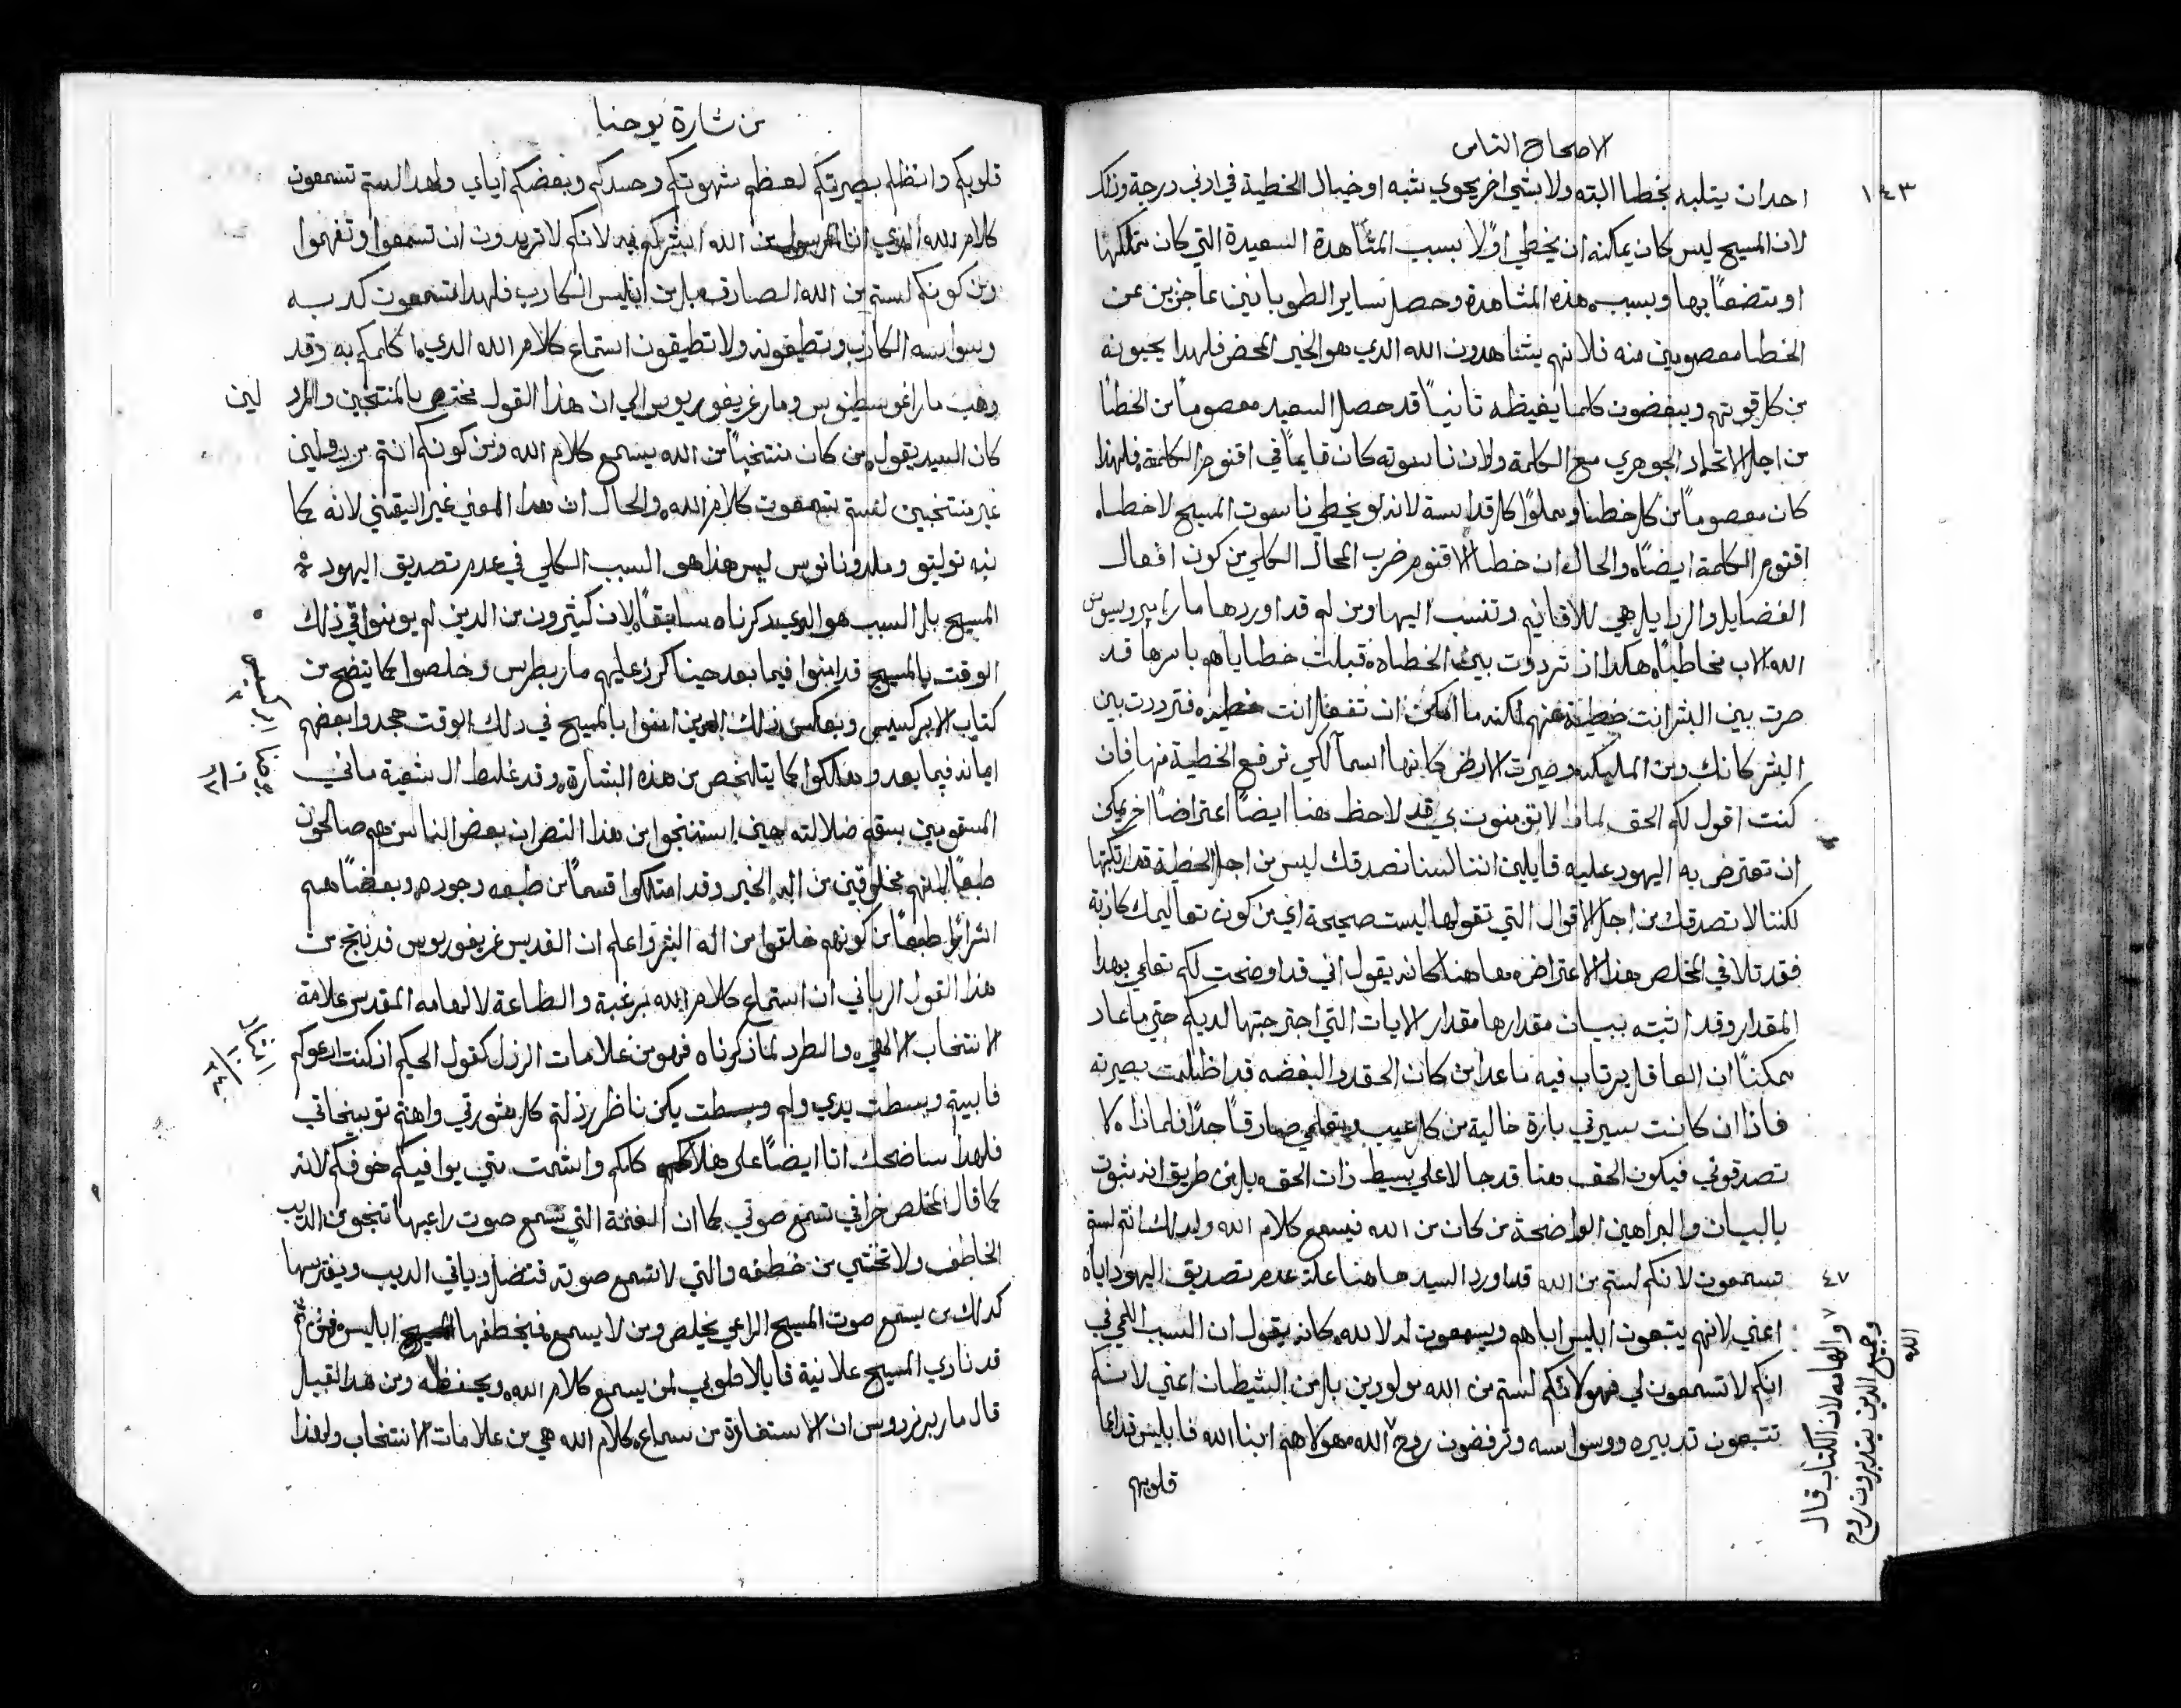 الاصحاح الثامن
١٤٣
احدان يتلبه بخطا البته ولا بشي اخر يحوي شبه او خيال الخطية في ادني درجة وذلك
لان المسيح ليس كان يمكنه ان يخطي اولًا بسبب المشاهدة السعيدة التي كان متملكها
او متضعًا بها وبسبب هذه المشاهدة وحصل ساير الطوبانيين عاجزين عن
الخطا معصومين منه فلانهم يشاهدون الله الدي هو الخير المحض فلهدا يحبونه
من كل قوتهم ويبغضون كلما يغيظه ثانيًا قد حصل السعيد معصومًا من الخطا
من اجل الاتحاد الجوهري مع الكلمة ولان ناسوته كان قايمًا في اقنوم الكلمة فلهذا
كان معصومًا من كل خطا ومملوًا كل قداسة لانه لو يخطي ناسوت المسيح لاخطا
اقنوم الكلمة ايضًا والحال ان خطا الاقنوم ضرب المحال الكلي من كون افعال
الفضايل والردايل هي للاقانيم وتنسب اليها ومن ثم قد اوردها مار ايرونيموس
الله الاب مخاطبًا هكدا اذ ترددت بين الخطاه قبلت خطاياهم باسرها قد
صرت بين البشر انت خطية عنهم لكنه ما امكن ان تفعل انت خطيه فترددت بين
البشر كانك من المليكه وصيرت الارض كانها اسمآ لكي ترفع الخطية منها فان
كنت اقول لكم الحق لماذا لا تومنون بي قد لاحظ هنا ايضًا اعتراضًا اخر يمكن
ان تعترض به اليهود عليه قايلين اننا لسنا نصدقك ليس من اجل الخطية قد ارتكبتها
لكننا لا نصدقك من اجل الاقوال التي تقولها ليست صحيحة اي من كون تعاليمك كاذبة
فقد تلافي المخلص هذا الاعتراض معا هنا كانه يقول اني قد اوضحت لكم تعلمي بهدا
المقدار وقد اثبته ببيان مقدارها مقدار الايات التي اجترحتها لديكم حتي ما عاد
ممكنًا ان العاقل يرتاب فيه ما عدا من كان الحقد والبغضه قد اظلمت بصيرته
فاذا ان كانت سيرتي بارة خالية من كل عيب وتعلمي صادقًا جدًا فلماذا لا
تصدقوني فيكون الحق هنا قد جا لا علي بسيط ذات الحق بل من طريق انه مثبوت
بالبيان والبراهين الواضحة من كان من الله فيسمع كلام الله ولدلك انتم لستم
٤٧
تسمعون لانكم لستم من الله قد اورد السيد هاهنا علة عدم تصديق اليهود اياه
اعني لانهم يتبعون ابليس اباهم ويسمعون له لا لله كانه يقول ان السبب الكلي في
انكم لا تسمعون لي فهو لانكم لستم من الله مولودين بل من الشيطان اعني لانكم
تتبعون تدبيره ووسواسه وترفضون روح الله هولاهم ابنا الله فابليس قد اعما
قلوبهم
والهامه لان الكتاب قال
وجميع الدين يتدبرون بروح
الله
من بشارة يوحنا
قلوبكم واظلم بصيرتكم لعظم شهوتكم وحسدكم وبغضكم اياي ولهدا لستم تسمعون
كلام الله الدي انا المرسول من الله ابشركم به لانكم لا تريدون ان تسمعوا وتفهموا
ومن كونكم لستم من الله الصادق بل من ابليس الكادب فلهدا تسمعون كدبه
ووسواسه الكادب وتطيعونه ولا تطيقون استماع كلام الله الدي اكلمكم به وقد
دهب مار اغوسطينوس ومار غريغوريوس الي ان هذا القول مختص بالمنتخبين والمرد لين
كان السيد يقول من كان منتخبًا من الله يسمع كلام الله ومن كونكم انتم مردولين
غير منتخبين لستم تسمعون كلام الله والحال ان هدا المعني غير اليقيني لانه كما
نبه توليتو وملدوناتوس ليس هذا هو السبب الكلي في عدم تصديق اليهود
المسيح بل السبب هو الدي دكرناه سابقًا لان كثيرون من الدين لم يومنوا في ذلك
الوقت بالمسيح قد امنوا فيما بعد حينا كرز عليهم مار بطرس وخلصوا كما يتضح من
كتاب الابركسيس وبعكس ذلك الدين امنوا بالمسيح في دلك الوقت جحدوا بعضهم
ايمانه فيما بعد وهلكوا كما يتلخص من هذه البشارة وقد غلط الـ شعية ماني
المسقومين بسقم ضلالته حين استنتجوا من هذا النص ان بعض الناس هم صالحون
طبعًا لانهم مخلوقين من اله الخير وقد امتلكوا قسمًا من طبعه وجوده وبعضًا هم
اشرارًا طبعًا من كونهم خلقوا من اله الشر واعلم ان القديس غريغوريوس قد نتج من
هذا القول الرباني ان استماع كلام الله برغبة والطاعة لالهامه المقدس علامة
الانتخاب الالهي والطرد لما ذكرناه فهو من علامات الرذل كقول الحكيم اذ كنت ادعوكم
فابيتم وبسطت يدي ولم يكن ناظر رذلتم كل مشورتي واهنتم توبيخاتي
فلهدا ساضحك انا ايضًا علي هلاككم واشمت متي يوافيكم خوفكم لانه
كما قال المخلص خرافي تسمع صوتي كما ان النعجة التي تسمع صوت راعيها تنجو من الديب
الخاطف ولا تختشي من خطفه والتي لا تسمع صوته فتضل وياتي الديب ويفترسها
كدلك من يسمع صوت المسيح الراعي يخلص ومن لا يسمع فيخطفها ابليس فمن ثم
قد نادي المسيح علانية قايلا طوبي لمن يسمع كلام الله ويحفظه ومن هدا القبيل
قال مار برنردوس ان الاستفادة من سماع كلام الله هي من علامات الانتخاب ولهذا